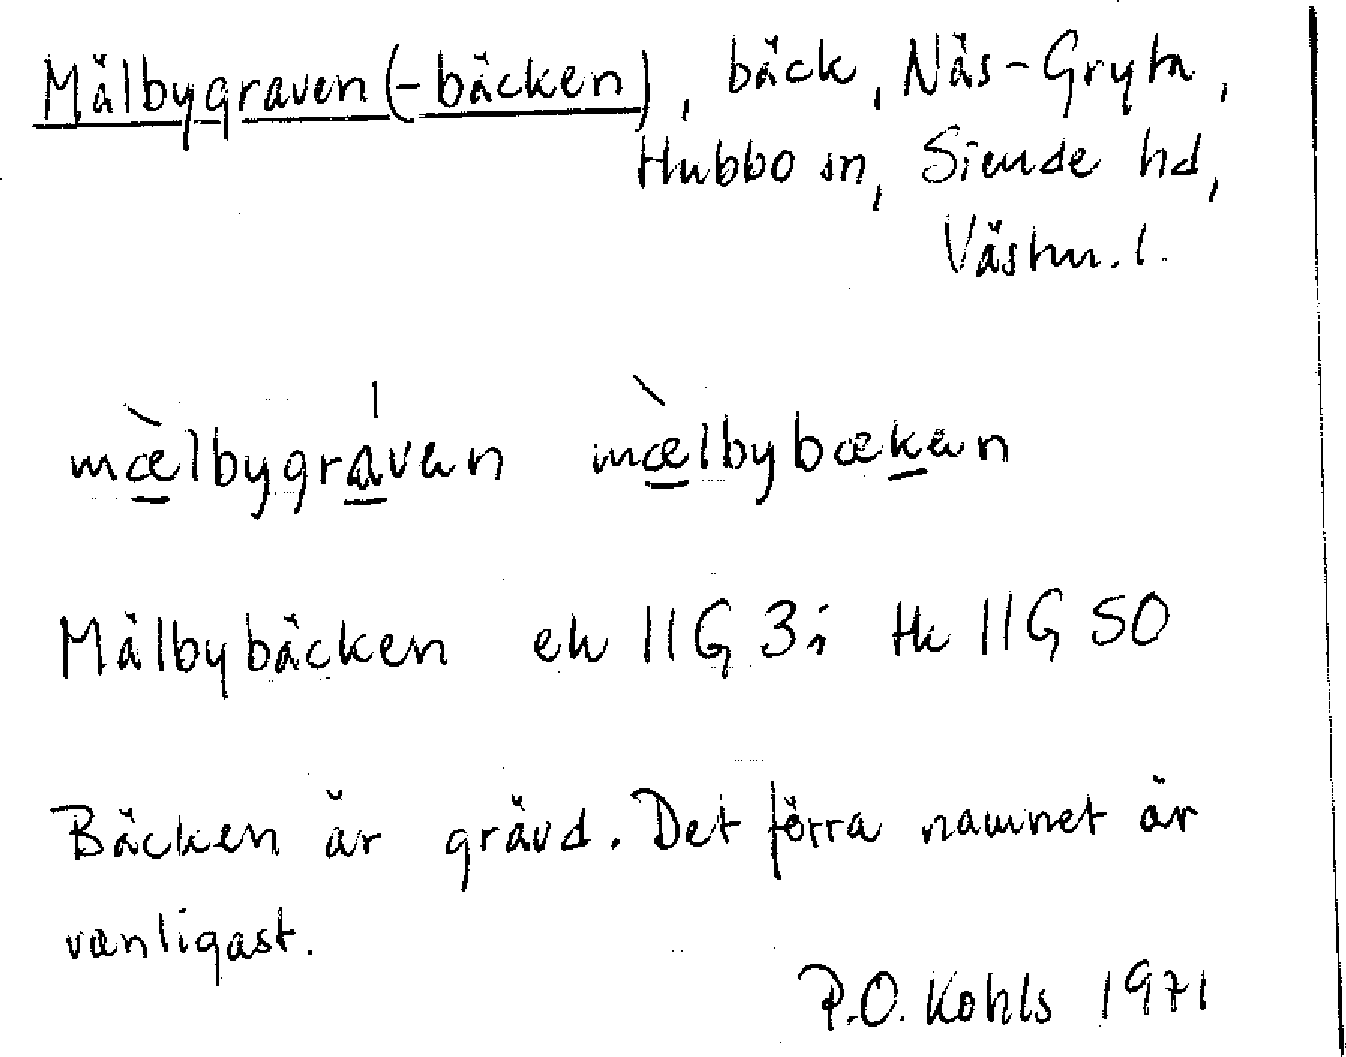 Mälbygraven (-bäcken), bäck, Näs-Gryta,
Hubbo sn, Siende hd,
Västm. l.
mæ̀lbygráven mæ̀lbybæken
Mälbybäcken ek 11G 3i tk 11G SO
Bäcken är grävd. Det förra namnet är
vanligast.
P.O. Kohls 1971